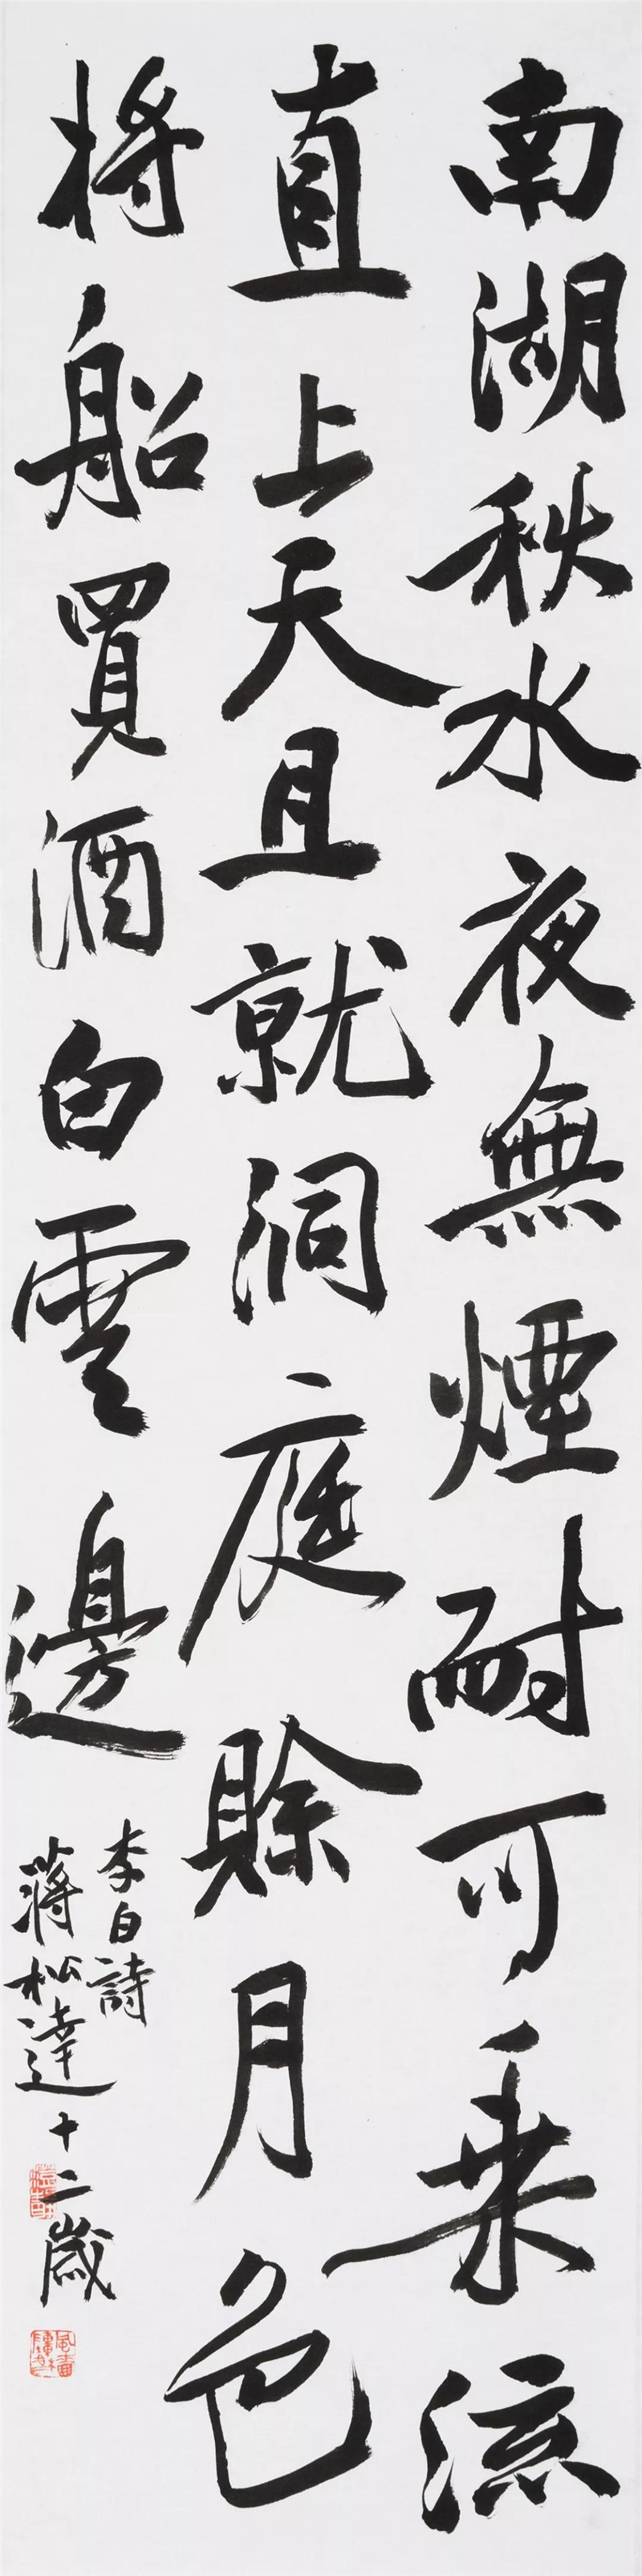 南湖秋水夜無煙耐可乗流
直上天且就洞庭賒月色
将船買酒白雲邊
李白詩
蒋松達十二歲